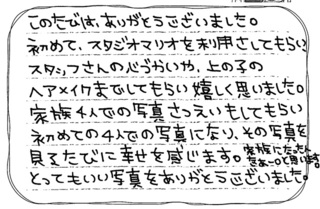 このたびは、ありがとうございました。
初めて、スタジオマリオを利用さしてもらい
スタッフさんの心づかいや、上の子の
ヘアメイクまでしてもらい嬉しく思いました。
家族4人での写真さつえいもしてもらい
初めての4人での写真になり、その写真を
見るたびに幸せを感じます。家族になったんだなぁーって思います。
とってもいい写真をありがとうございました。